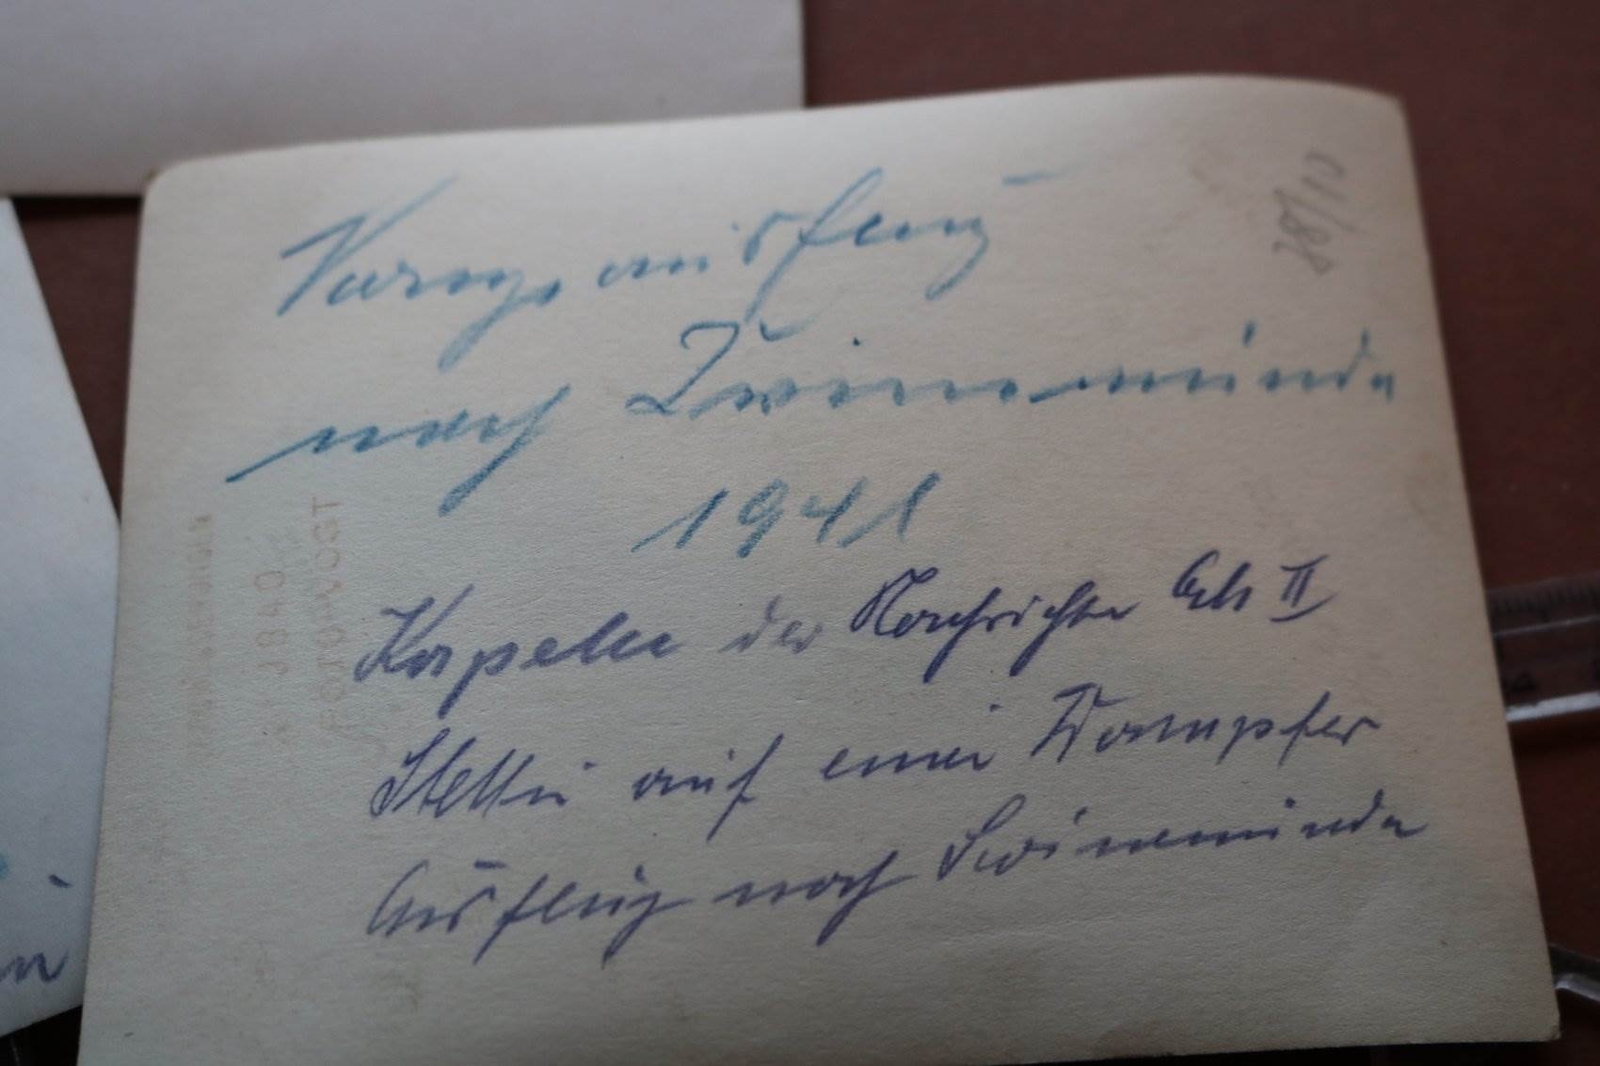 28/10
ausflug
nach Zwinemünde
1941
Kapelle der Nachrichten II
Stettin auf einen Dampfer
Ausflug nach Swinemünde
FOTO-VOGT
1940